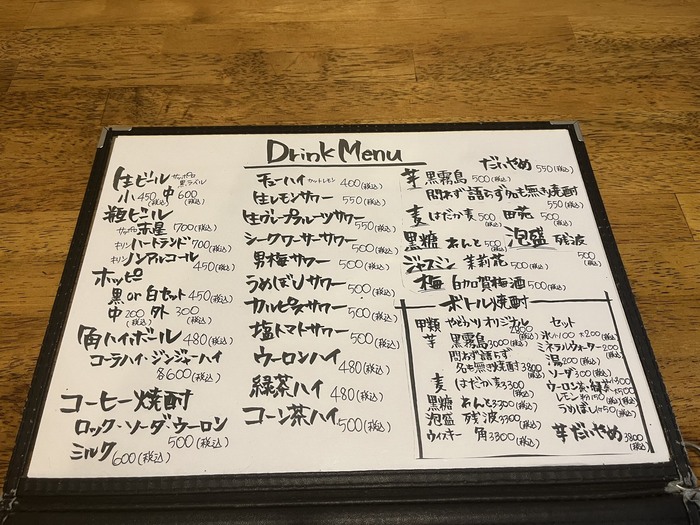 Drink Menu
生ビール サッポロ 黒ラベル
小450(税込) 中600(税込)
瓶ビール
サッポロ 赤星 700(税込)
キリン ハートランド 700(税込)
キリン ノンアルコール 450(税込)
ホッピー
黒 or 白セット 450(税込)
中200(税込) 外300(税込)
角ハイボール 480(税込)
コーラハイ・ジンジャーハイ
各600(税込)
コーヒー焼酎
ロック・ソーダ・ウーロン
500(税込)
ミルク 600(税込)
チューハイ カットレモン 400(税込)
生レモンサワー 550(税込)
生グレープフルーツサワー 550(税込)
シークワーサーサワー 500(税込)
男梅サワー 500(税込)
うめぼしサワー 500(税込)
カルピスサワー 500(税込)
塩トマトサワー 500(税込)
ウーロンハイ 480(税込)
緑茶ハイ 480(税込)
コーン茶ハイ 500(税込)
だいやめ 550(税込)
芋 黒霧島 500(税込)
問わず語らず名も無き焼酎 550(税込)
麦 はだか麦 500(税込) 田苑 500(税込)
黒糖 あんと 500(税込) 泡盛 残波 500(税込)
ジャスミン 茉莉花 500(税込)
梅 白加賀梅酒 500(税込)
ボトル焼酎
甲類 やどかりオリジナル
芋 黒霧島 3000(税込)
問わず語らず
名も無き焼酎 3800(税込)
麦 はだか麦 3300(税込)
黒糖 あんと 3300(税込)
泡盛 残波 3300(税込)
ウィスキー 角 3300(税込)
セット
氷小100 大200(税込)
ミネラルウォーター 200(税込)
湯 200(税込)
ソーダ 300(税込)
ウーロン茶・緑茶
レモン
うめぼし
芋 だいやめ 3800(税込)